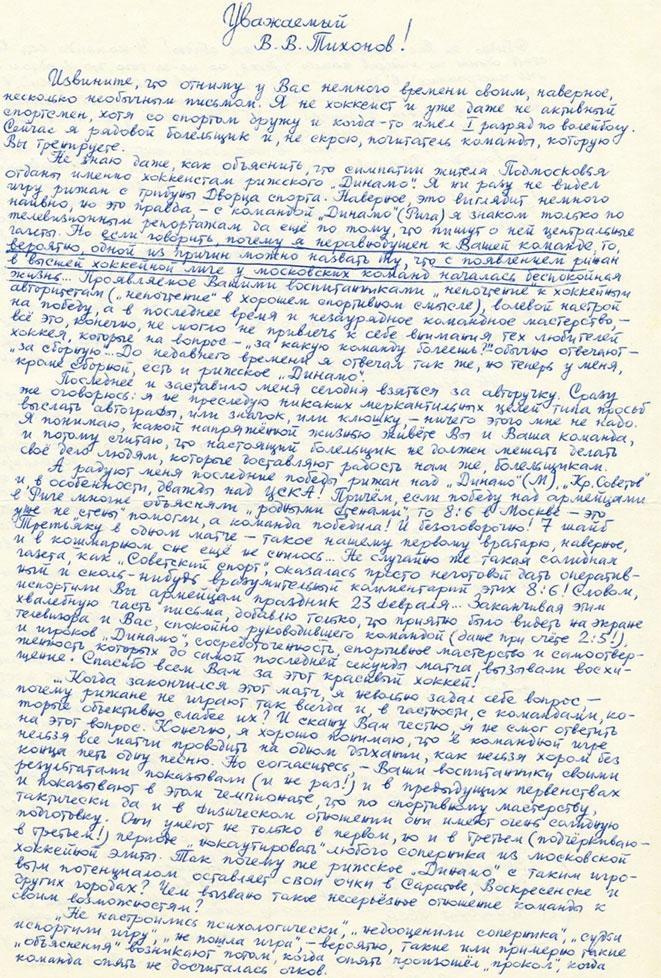 Уважаемый
В.В.Тихонов!
Извините, что отниму у Вас немного времени своим, наверное,
несколько необычным письмом. Я не хоккеист и уже даже не активный
спортсмен, хотя со спортом дружу и когда-то имел I разряд по волейболу.
Сейчас я рядовой болельщик и, не скрою, почитатель команды, которую
Вы тренируете.
Не знаю даже, как объяснить, что симпатии жителя Подмосковья
отданы именно хоккеистам рижского „Динамо". Я ни разу не видел
игру рижан с трибуны Дворца спорта. Наверное, это выглядит немного
наивно, но это правда, – с командой „Динамо" (Рига) я знаком только по
телевизионным репортажам да ещё по тому, что пишут о ней центральные
газеты. Но если говорить, почему я неравнодушен к Вашей команде, то,
вероятно, одной из причин можно назвать ту, что с появлением рижан
в высшей хоккейной лиге у московских команд началась беспокойная
жизнь... Проявляемое Вашими воспитанниками „непочтение" к хоккейным
авторитетам („непочтение" в хорошем спортивном смысле), волевой настрой
на победу, а в последнее время и незаурядное командное мастерство –
всё это, конечно, не могло не привлечь к себе внимания тех любителей
хоккея, которые на вопрос – „за какую команду болеешь?" обычно отвечают –
„за сборную"... До недавнего времени я отвечал так же, но теперь у меня,
кроме сборной, есть и рижское „Динамо".
Последнее и заставило меня сегодня взяться за авторучку. Сразу
же оговорюсь: я не преследую никаких меркантильных целей типа просьб
выслать автографы, или значок, или клюшку – ничего этого мне не надо.
Я понимаю, какой напряжённой жизнью живёте Вы и Ваша команда,
и потому считаю, что настоящий болельщик не должен мешать делать
своё дело людям, которые доставляют радость нам же, болельщикам.
А радуют меня последние победы рижан над „Динамо" (М), „Кр. Советов"
и в особенности, дважды над ЦСКА! Причём, если победу над армейцами
в Риге многие объясняли „родными стенами", то 8:6 в Москве – это
уже не стены помогли, а команда победила! И безоговорочно! 7 шайб
Третьяку в одном матче – такое нашему первому вратарю, наверное,
и в кошмарном сне ещё не снилось... Не случайно же такая солидная
газета, как „Советский спорт", оказалась просто неготовой дать оператив-
ный и сколь-нибудь вразумительный комментарий этих 8:6! Словом,
испортили Вы армейцам праздник 23 февраля... Заканчивая этим
хвалебную часть письма, добавлю только, что приятно было видеть на экране
телевизора и Вас, спокойно руководившего командой (даже при счёте 2:5!),
и игроков „Динамо", сосредоточенность, спортивное мастерство и самоотвер-
женность которых до самой последней секунды матча вызывали восхи-
щение. Спасибо всем Вам за этот красивый хоккей!
... Когда закончился этот матч, я невольно задал себе вопрос, –
почему рижане не играют так всегда и, в частности, с командами, ко-
торые объективно слабее их? И скажу Вам честно, я не смог ответить
на этот вопрос. Конечно, я хорошо понимаю, что в командной игре
нельзя все матчи проводить на одном дыхании, как нельзя хором без
конца петь одну песню. Но согласитесь, – Ваши воспитанники своими
результатами показывали (и не раз!) и в предыдущих первенствах
и показывают в этом чемпионате, что по спортивному мастерству,
тактически да и в физическом отношении они имеют очень солидную
подготовку. Они умеют не только в первом, но и в третьем (подчёркиваю –
в третьем!) периоде „нокаутировать" любого соперника из московской
хоккейной элиты. Так почему же рижское „Динамо" с таким игро-
вым потенциалом оставляет свои очки в Саратове, Воскресенске и
других городах? Чем вызвано такое несерьёзное отношение команды к
своим возможностям?
„Не настроились психологически", „недооценили соперника", „судьи
испортили игру", „не пошла игра", – вероятно, такие или примерно такие
„объяснения" возникают потом, когда опять произошёл „прокол", когда
команда опять не досчиталась очков.